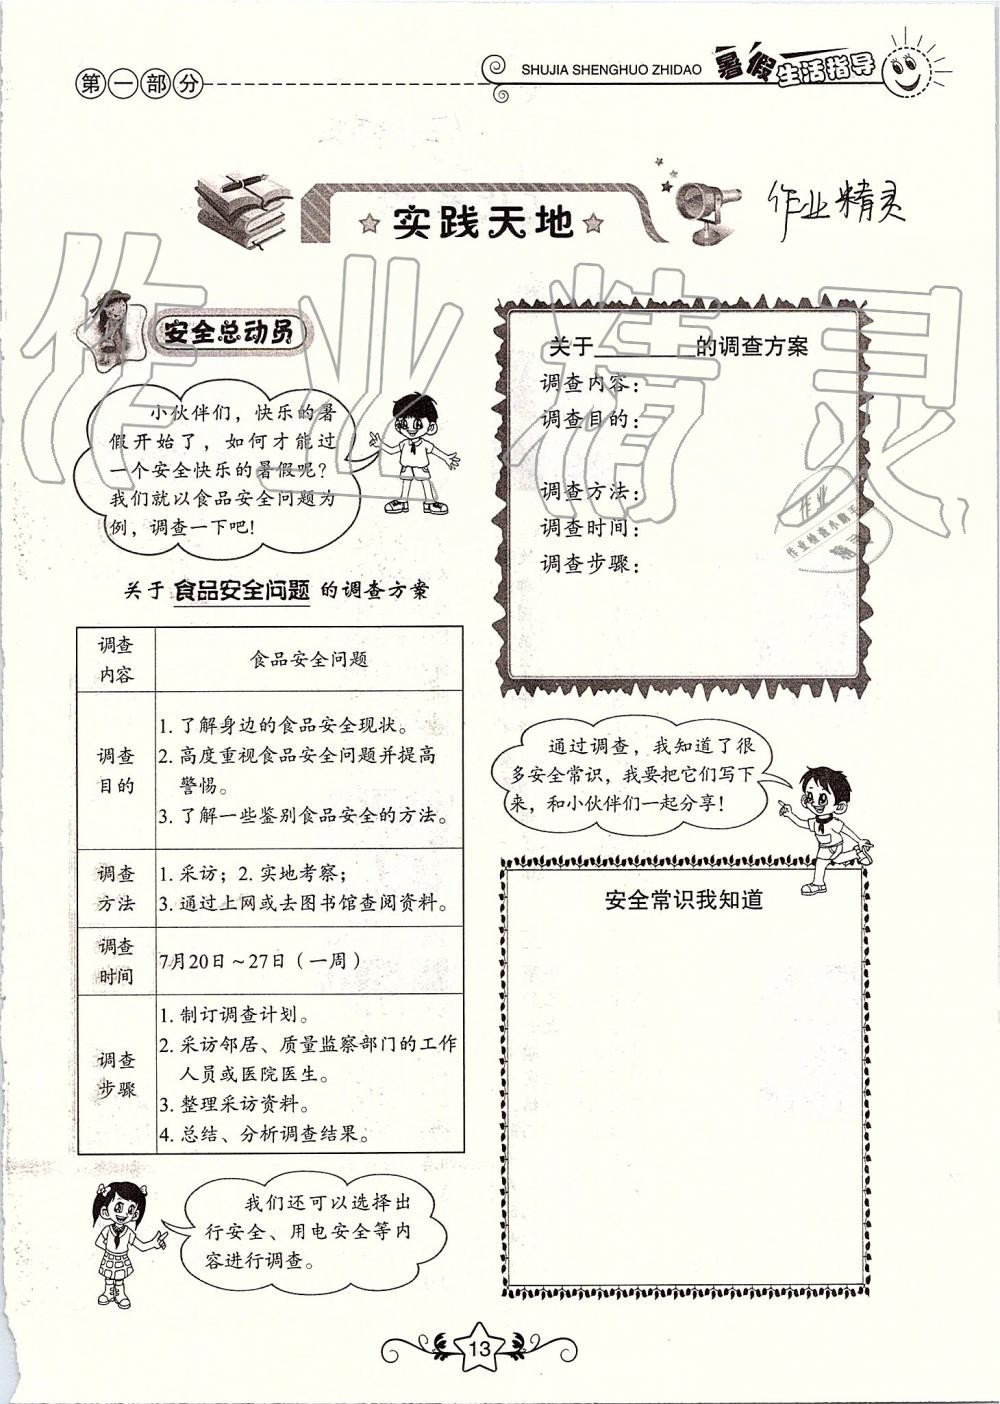 第一部分
SHUJIA SHENGHUO ZHIDAO
暑假生活指导
实践天地
作业精灵
作业精灵
安全总动员
小伙伴们，快乐的暑
假开始了，如何才能过
一个安全快乐的暑假呢？
我们就以食品安全问题为
例，调查一下吧！
关于 食品安全问题 的调查方案
调查内容 食品安全问题
调查目的
1. 了解身边的食品安全现状。
2. 高度重视食品安全问题并提高
警惕。
3. 了解一些鉴别食品安全的方法。
调查方法
1. 采访；2. 实地考察；
3. 通过上网或去图书馆查阅资料。
调查时间 7月20日～27日（一周）
调查步骤
1. 制订调查计划。
2. 采访邻居、质量监察部门的工作
人员或医院医生。
3. 整理采访资料。
4. 总结、分析调查结果。
我们还可以选择出
行安全、用电安全等内
容进行调查。
关于________的调查方案
调查内容：
调查目的：
调查方法：
调查时间：
调查步骤：
作业
作业检查小助手
精灵
通过调查，我知道了很
多安全常识，我要把它们写下
来，和小伙伴们一起分享！
安全常识我知道
13